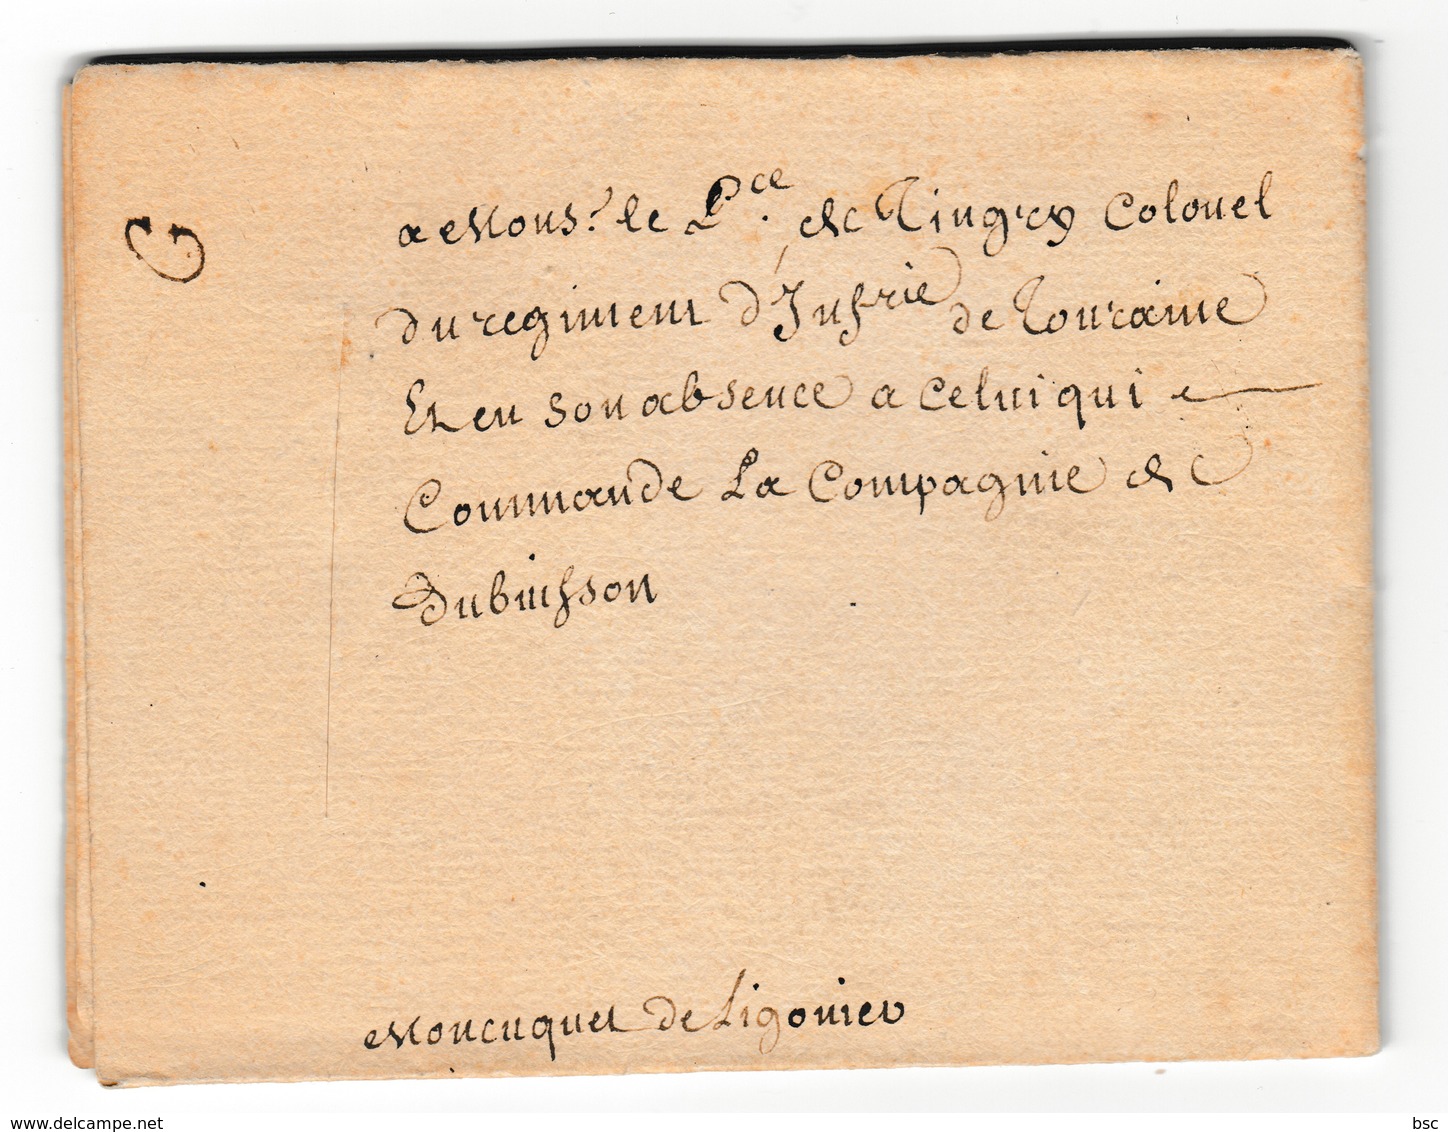 a Mons.r le P.ce de Tingry Colonel
du regiment d'Inf.rie de Touraine
Et en son absence a Celui qui
Commande La Compagnie de
Dubuisson
de Ligonier
www.delcampe.net
bsc